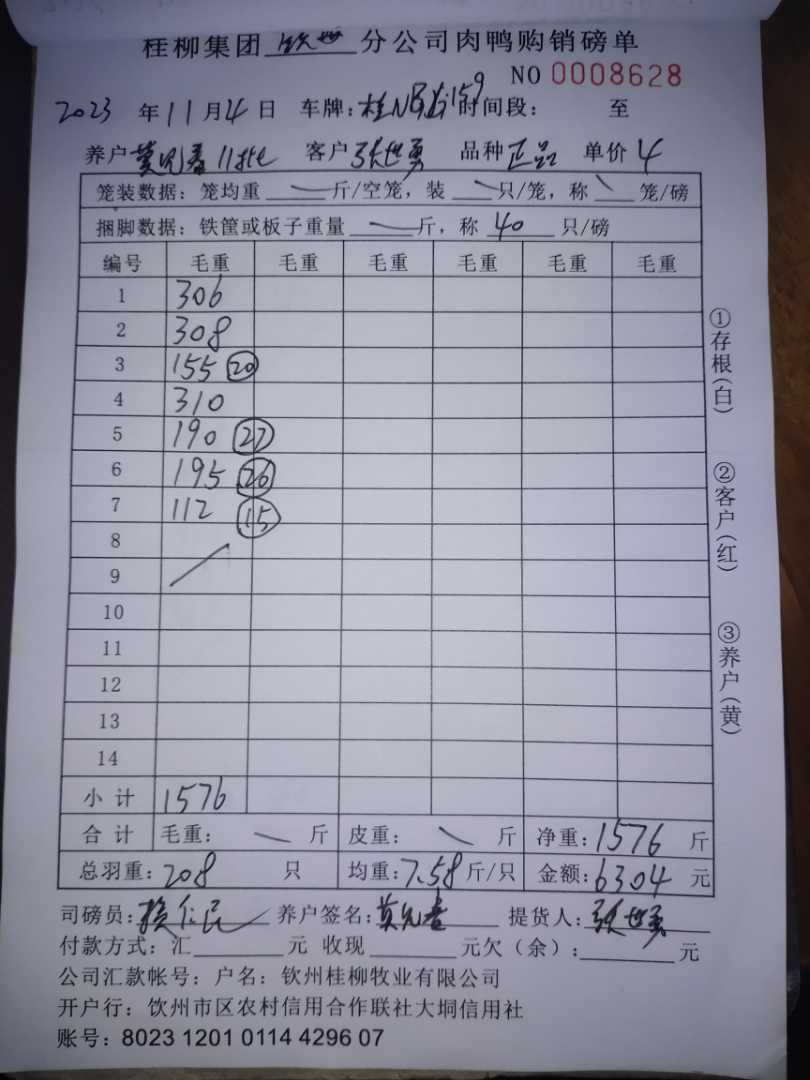 桂柳集团 钦世 分公司肉鸭购销磅单
NO 0008628
2023 年 11 月 4 日 车牌：桂N 159 时间段： 至
养户 莫 春 11批 客户 张世勇 品种 正品 单价 4
笼装数据：笼均重 斤/空笼，装 只/笼，称 笼/磅
捆脚数据：铁筐或板子重量 斤，称 40 只/磅
编号 毛重 毛重 毛重 毛重 毛重 毛重
1 306
2 308
3 155 20
4 310
5 190 27
6 195 26
7 112 15
8
9
10
11
12
13
14
小计 1576
合计 毛重： 斤 皮重： 斤 净重：1576 斤
总羽重：208 只 均重：7.58 斤/只 金额：6304 元
司磅员： 仁民 养户签名：莫 春 提货人：张世勇
付款方式：汇 元 收现 元欠（余）： 元
公司汇款帐号：户名：钦州桂柳牧业有限公司
开户行：饮州市区农村信用合作联社大垌信用社
账号：8023 1201 0114 4296 07
①存根（白）
②客户（红）
③养户（黄）